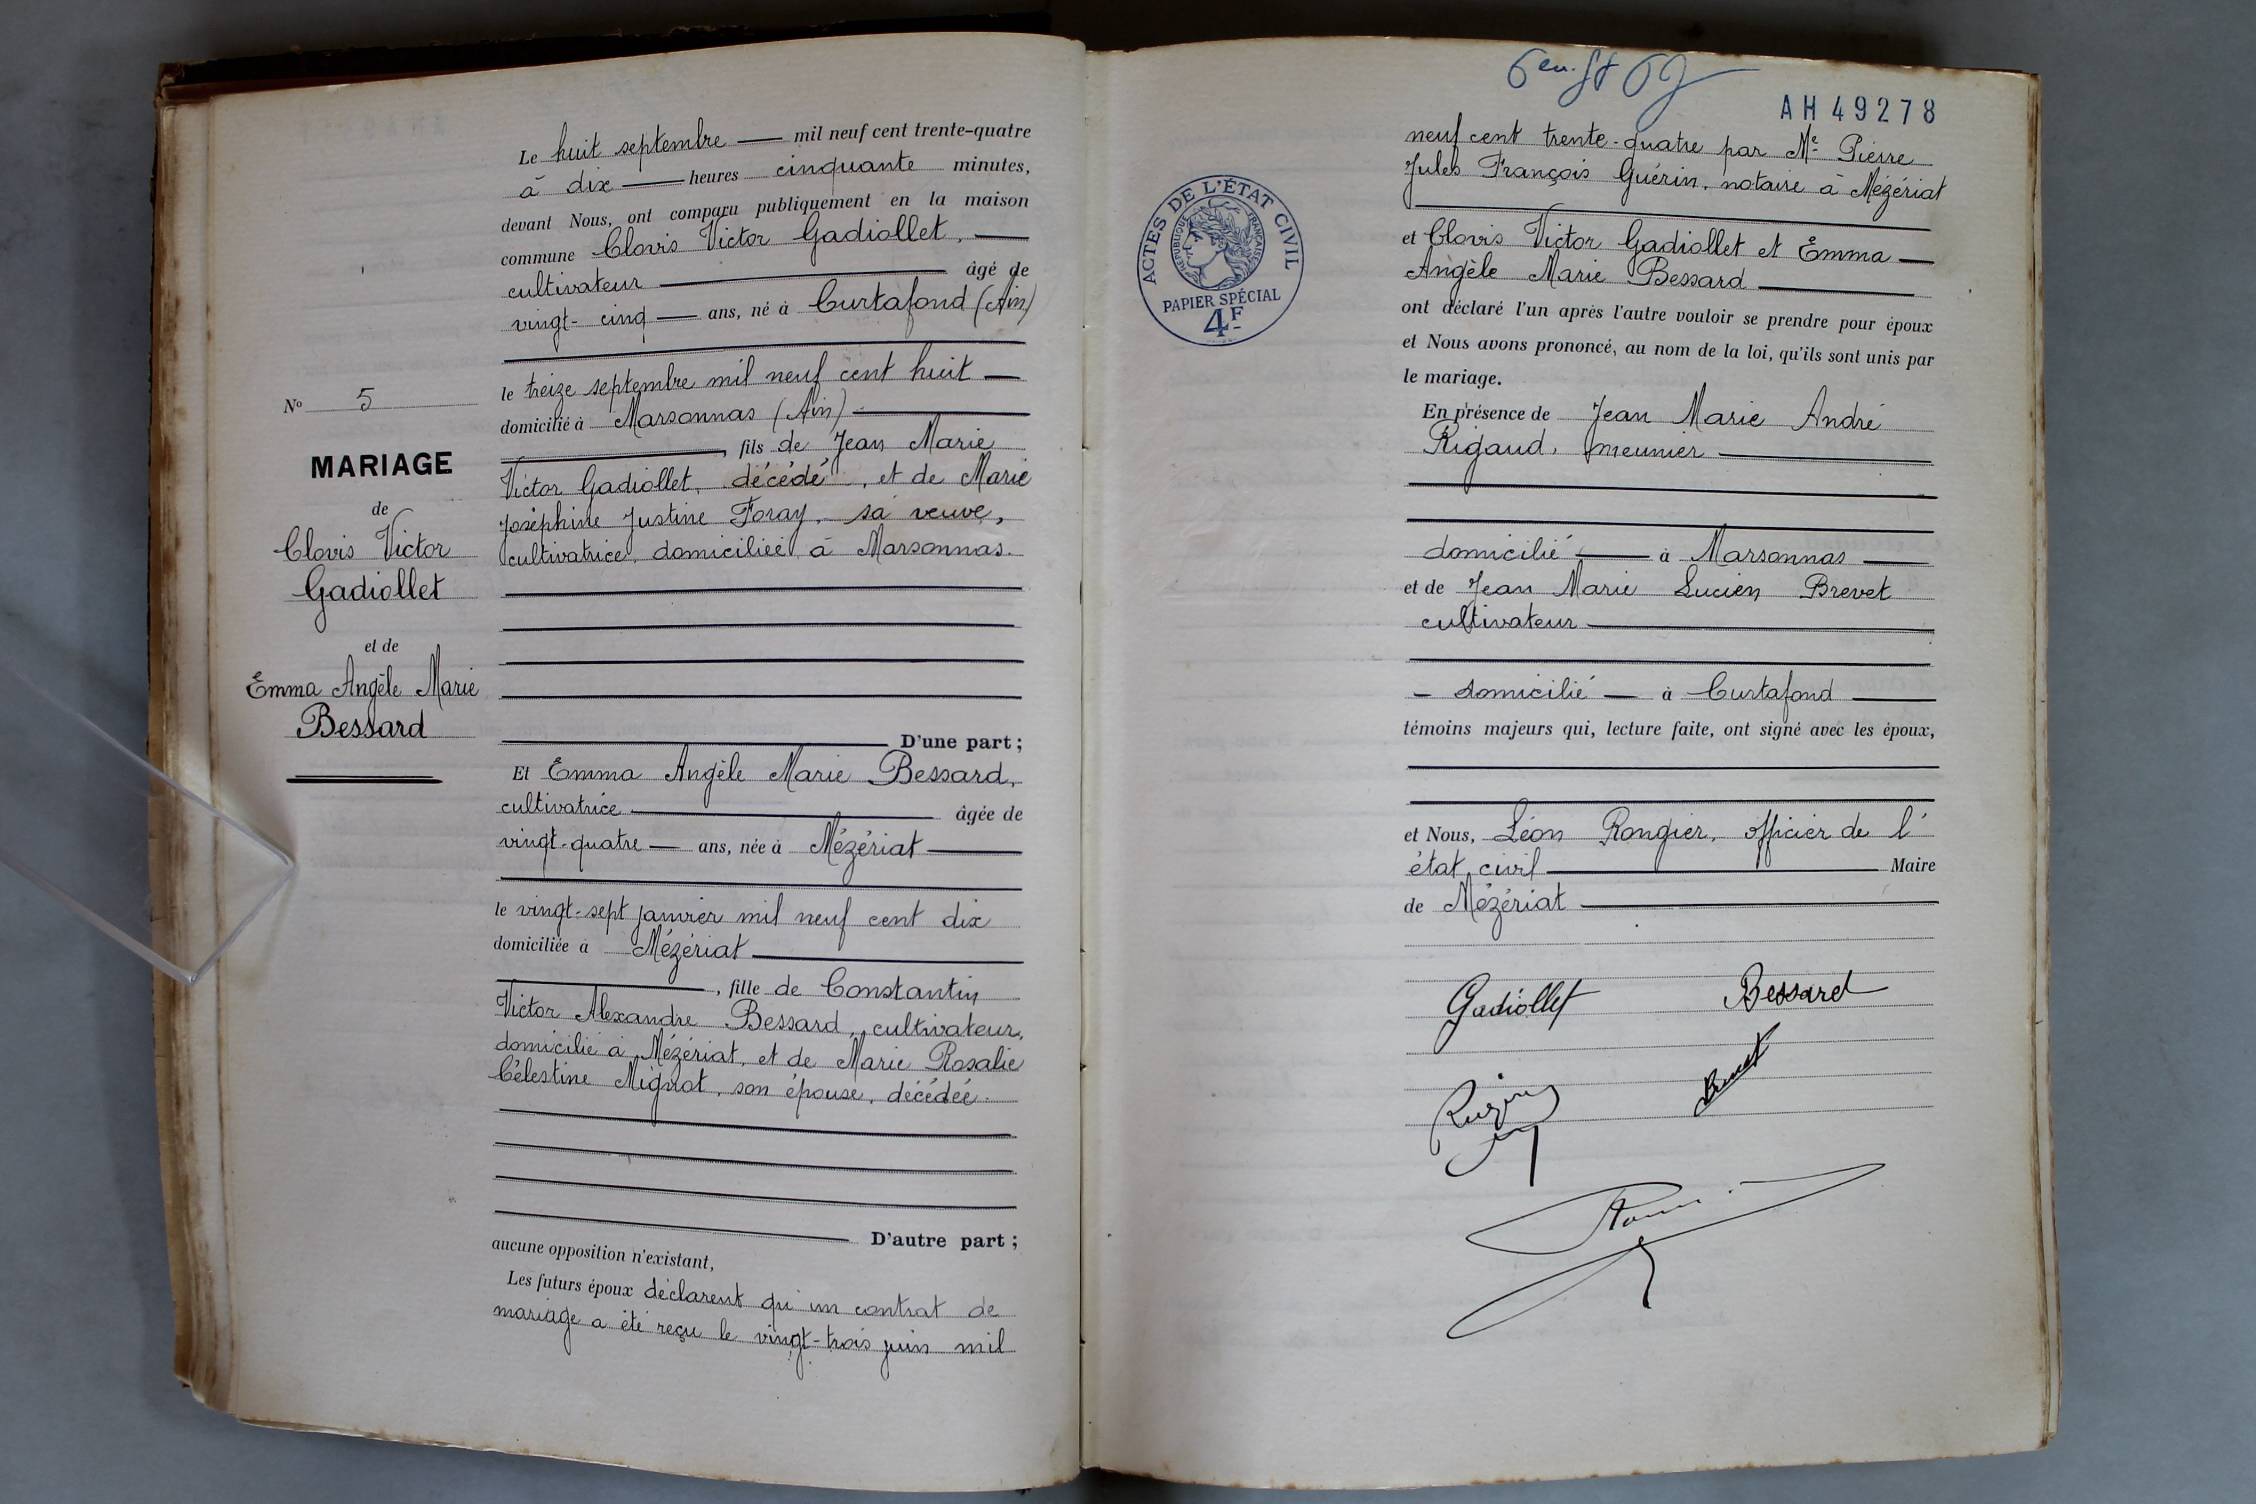 Le huit septembre mil neuf cent trente-quatre
à dix heures cinquante minutes,
devant Nous, ont comparu publiquement en la maison
commune Clovis Victor Gadiollet,
cultivateur âgé de
vingt-cinq ans, né à Curtafond (Ain)
le treize septembre mil neuf cent huit
domicilié à Marsonnas (Ain)
, fils de Jean Marie
Victor Gadiollet, décédé, et de Marie
Joséphine Justine Foray, sa veuve,
cultivatrice, domiciliée à Marsonnas.
D'une part ;
Nº 5
MARIAGE
de
Clovis Victor
Gadiollet
et de
Emma Angèle Marie
Bessard
Et Emma Angèle Marie Bessard,
cultivatrice âgée de
vingt-quatre ans, née à Mézériat
le vingt-sept janvier mil neuf cent dix
domiciliée à Mézériat
, fille de Constantin
Victor Alexandre Bessard, cultivateur,
domicilié à Mézériat, et de Marie Rosalie
Célestine Mignot, son épouse, décédée.
D'autre part ;
aucune opposition n'existant,
Les futurs époux déclarent qu'un contrat de
mariage a été reçu le vingt-trois juin mil
AH49278
ACTES DE L'ÉTAT CIVIL
RÉPUBLIQUE FRANÇAISE
PAPIER SPÉCIAL
4F
neuf cent trente-quatre par Me Pierre
Jules François Guérin, notaire à Mézériat
et Clovis Victor Gadiollet et Emma
Angèle Marie Bessard
ont déclaré l'un après l'autre vouloir se prendre pour époux
et Nous avons prononcé, au nom de la loi, qu'ils sont unis par
le mariage.
En présence de Jean Marie André
Rigaud, meunier
domicilié à Marsonnas
et de Jean Marie Lucien Brevet
cultivateur
domicilié à Curtafond
témoins majeurs qui, lecture faite, ont signé avec les époux,
et Nous, Léon Rongier, officier de l'
état civil Maire
de Mézériat
Gadiollet Bessard
Brevet